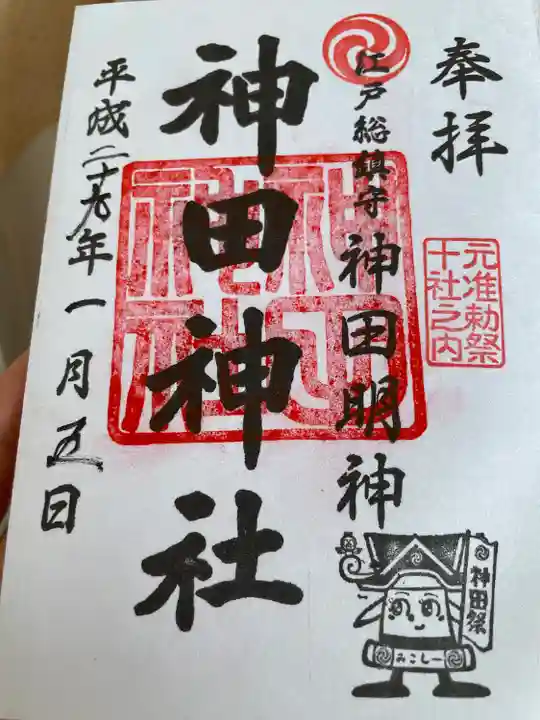 奉拝
元准勅祭
十社之内
江戸総鎮守
神田明神
神田神社
神田神社
平成二十九年一月五日
神田祭
みこしー